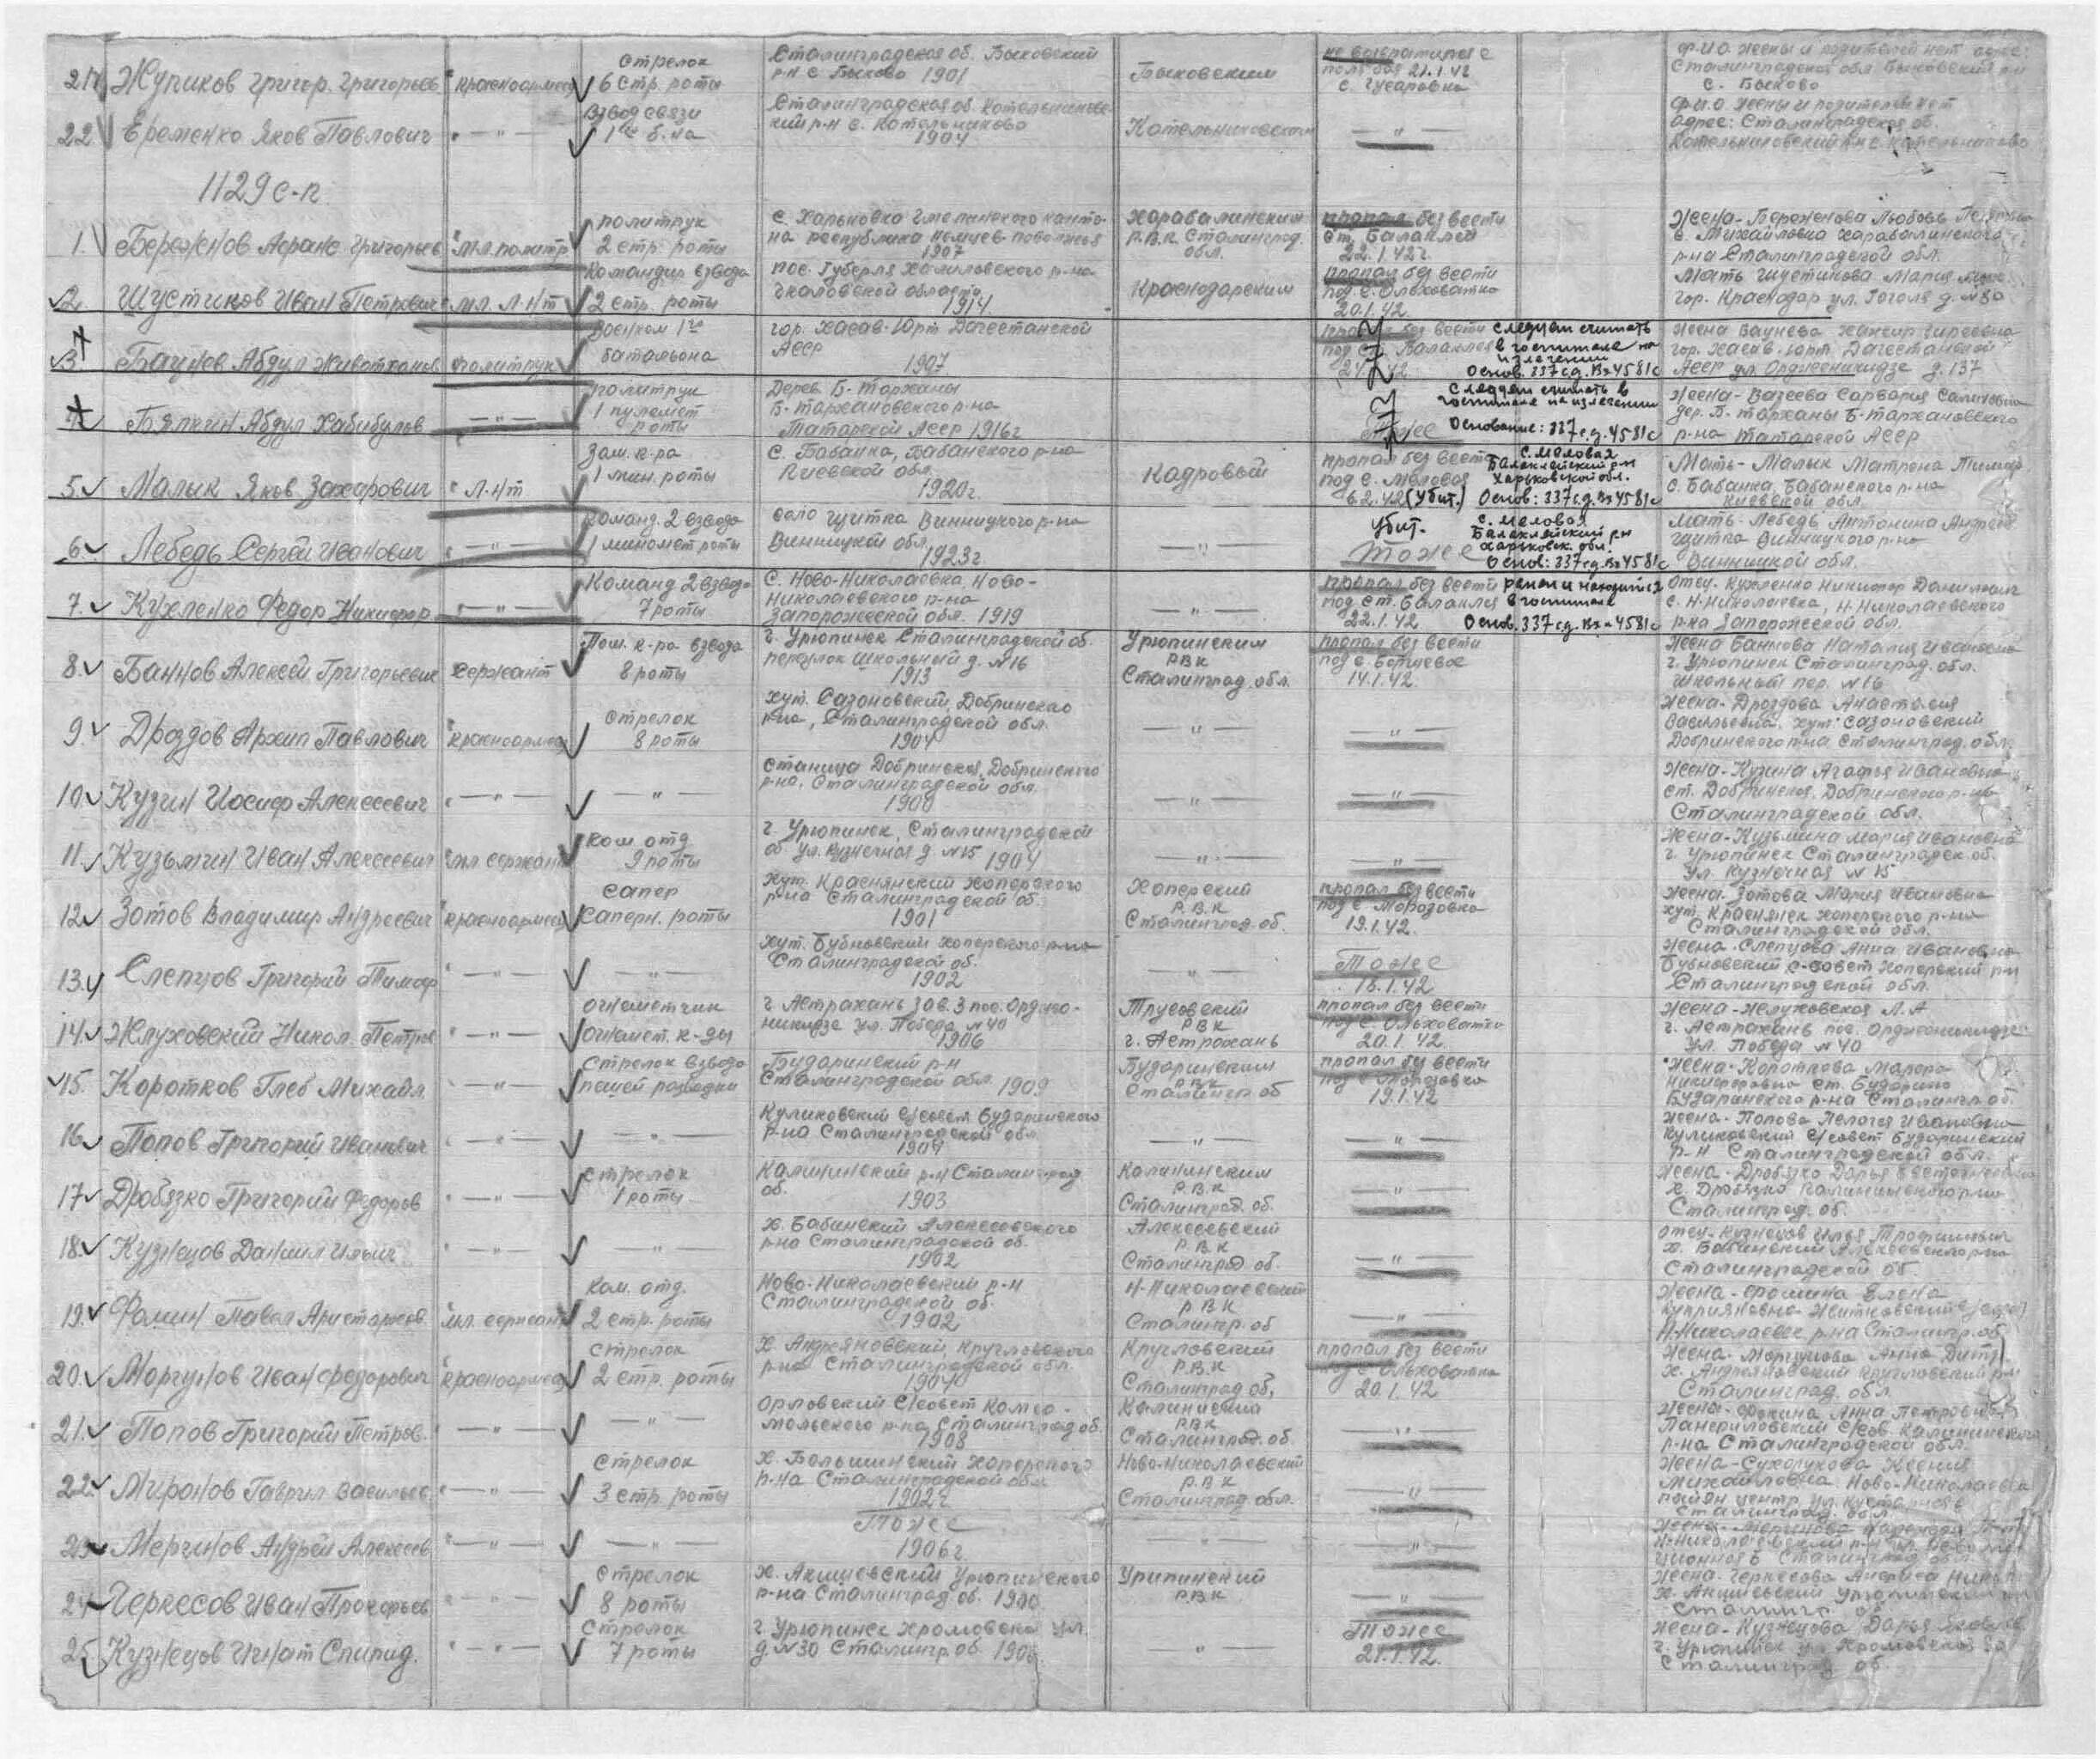 21 Жупиков Григор. Григорьев красноармеец
Стрелок
6 стр. роты
Сталинградская об. Быковский
р-н с. Быково 1901
Быковским
не возвратился с
поля боя 21.1.42
с. Гусаровка
ф.и.о. жены и родителей нет адрес:
Сталинградская обл. Быковский р-н
с. Быково
22 Еременко Яков Павлович — " —
Взвод связи
1го б-на
Сталинградская об. Котельниковс-
кий р-н с. Котельниково
1904
Котельниковским
— " —
Ф.и.о. жены и родителей нет
адрес: Сталинградская об.
Котельниковский р-н с. Котельниково
1129 с-п
1. Береженов Афанас. Григорьев мл. политр.
политрук
2 стр. роты
1907
Харабалинским
Р.В.К. Сталинград.
обл.
пропал без вести
ст. Балаклея
22.1.42г.
Жена - Береженова Любовь
с. Михайловка Харабалинского
р-на Сталинградской обл.
2. Шустиков Иван Петрович мл. л-нт
Командир взвода
2 стр. роты
пос. Губерля Халиловского р-на
Чкаловской области
1914
Краснодарским
пропал без вести
под с. Ольховатка
20.1.42
Мать Шустикова Мария
гор. Краснодар ул. Гоголя д. №80
3. Баунов Абдул Живатханов политрук
Военком 1го
батальона
гор. Хасав-Юрт Дагестанской
АССР
1907
пропал без вести
под ст. Балаклея
следует считать
в госпитале на
излечении
Основ. 337 сд. Вх 4581с
гор. Хасав-Юрт Дагестанской
АССР ул. Орджоникидзе д. 137
4. Бялкин Абдул Хабибулов — " —
политрук
1 пулемет
роты
Дерев. Б-Тарханы
Б-Тархановского р-на
Татарской АССР 1916г
Тоже
следует считать в
госпитале на излечении
Основание: 337 с.д. 4581с
Жена - Вазеева Сарвария
дер. Б-Тарханы Б-Тархановского
р-на Татарской АССР
5. Малык Яков Захарович Л-нт
Зам. к-ра
1 мин. роты
с. Бабанка, Бабанского р-на
Киевской обл.
1920г.
Кадровый
пропал без вести
под с. Меловая
6.2.42 (убит.)
с. Меловая
Балаклейский р-н
Харьковской обл.
Основ: 337 сд. Вх 4581с
Мать - Малык Матрена
с. Бабанка, Бабанского р-на
Киевской обл.
6. Лебедь Сергей Иванович — " —
Команд. 2 взвода
1 миномет роты
село Щитка Винницкого р-на
Винницкой обл.
1923г.
— " —
убит.
Тоже
с. Меловая
Балаклейский р-н
Харьковск. обл.
Основ: 337 сд. Вх 4581с
Мать - Лебедь Антонина Андреев
Щитка Винницкого р-на
Винницкой обл.
7. Кухленко Федор Никифор — " —
Команд 2 взвода
7 роты
С. Ново-Николаевка Ново-
Николаевского р-на
Запорожеской обл. 1919
— " —
пропал без вести
под ст. Балаклея
22.1.42
ранен и находится
в госпитале
Основ. 337 сд. Вх-4581с
отец. Кухленко Никифор Данилович
с. Н-Николаевка, Н-Николаевского
р-на Запорожской обл.
8. Баннов Алексей Григорьевич Сержант
Пом. к-ра взвода
8 роты
г. Урюпинск Сталинградской об.
переулок Школьный д. №16
1913
Урюпинским
РВК
Сталинград. обл.
пропал без вести
14.1.42.
Жена Баннова Наталия Ивановна
г. Урюпинск Сталинград. обл.
Школьный пер. №16
9. Дроздов Архип Павлович красноармеец
Стрелок
8 роты
хут. Сазоновский, Добринского
р-на, Сталинградской обл.
1904
— " —
— " —
Жена - Дроздова Анастасия
Васильевна, хут. Сазоновский
Добринского р-на Сталинград. обл.
10. Кузин Иосиф Алексеевич — " —
— " —
станица Добринская, Добринского
р-на, Сталинградской обл.
1900
— " —
— " —
Жена - Кузина Агафья Ивановна
ст. Добринская, Добринского р-на
Сталинградской обл.
11. Кузьмин Иван Алексеевич мл сержант
Ком. отд
9 роты
г. Урюпинск, Сталинградской
об. ул. Кузнечная д №15 1904
— " —
— " —
Жена - Кузьмина Мария Ивановна
г. Урюпинск Сталинградск. об.
Ул. Кузнечная №15
12. Зотов Владимир Андреевич красноармеец
Сапер
Саперн. роты
хут. Краснянский Хоперского
р-на Сталинградской об.
1901
Хоперский
Р.В.К
Сталинград. об.
пропал без вести
под с Морозовка
19.1.42.
Жена Зотова Мария Ивановна
хут. Краснянск. Хоперского р-на
Сталинградской обл.
13. Слепцов Григорий Тимоф — " —
— " —
хут. Бубновский Хоперского р-на
Сталинградской об.
1902
— " —
Тоже
18.1.42
Жена - Слепцова Анна Ивановна
Бубновский с-совет Хоперский р-н
Сталинградской обл.
14. Жлуховский Никол. Петров — " —
огнеметчик
огнемет. к-ды
г. Астрахань зав. 3 пос. Орджо-
никидзе ул. Победа №40
1906
Трусовский
РВК
г. Астрахань
пропал без вести
под с. Ольховатка
20.1.42.
Жена - Жлуховская Л.А
г. Астрахань пос. Орджоникидзе
Ул. Победа №40
15. Коротков Глеб Михайл. — " —
Стрелок взвода
пешей разведки
Бударинский р-н
Сталинградской обл. 1909
Бударинским
РВК
Сталингр об
пропал без вести
под с Морозовка
19.1.42
Жена - Короткова
Никифоровна ст. Бударино
Бударинского р-на Сталингр. об.
16. Попов Григорий Иванович — " —
— " —
Куликовский с/совет Бударинского
р-на Сталинградской обл.
1904
— " —
— " —
Жена - Попова Пелагея Ивановна
Куликовский с/совет Бударинский
р-н Сталинградской обл.
17. Дробязко Григорий Федоров — " —
Стрелок
1 роты
Калининский р-н Сталинград
об.
1903
Калининским
Р.В.К
Сталинград. об.
— " —
Жена - Дробязко Дарья
х. Дробязко Калининского р-на
Сталинград. об.
18. Кузнецов Даниил Ильич — " —
— " —
х. Бабинский Алексеевского
р-на Сталинградской об.
1902
Алексеевский
Р.В.К
Сталинград об.
— " —
отец - Кузнецов Илья Трофимович
х. Бабинский Алексеевского р-на
Сталинградской об.
19. Фомин Павел Аристархов. мл. сержант
Ком. отд.
2 стр. роты
Ново-Николаевский р-н
Сталинградской об.
1902
Н-Николаевский
Р.В.К
Сталингр. об
— " —
Жена - Фомина Елена
Куприяновна
Н-Николаевск. р-на Сталингр. об.
20. Моргунов Иван Федорович красноармеец
Стрелок
2 стр. роты
х. Андреяновский, Кругловского
р-на Сталинградской обл.
1904
Кругловский
Р.В.К
Сталинград об.
пропал без вести
под с. Ольховатка
20.1.42
Жена - Моргунова Анна Дмитр
х. Андреяновский Кругловский р-н
Сталинград. обл.
21. Попов Григорий Петров. — " —
— " —
Орловский с/совет Комсо-
мольского р-на, Сталинград об.
1908
Калинискии
РВК
Сталинград. об.
— " —
Жена - Фокина Анна Петровна
с/сов. Калининский
р-на Сталинградской обл.
22. Миронов Гаврил Васильев. — " —
Стрелок
3 стр. роты
х. Большинский Хоперского
р-на Сталинградской обл.
1902г.
Ново-Николаевский
Р.В.К
Сталинград обл.
— " —
Жена - Сухорукова Ксения
Михайловна Ново-Николаевск
район центр ул.
Сталинград. обл
23. Мергинов Андрей Алексеев — " —
— " —
Тоже
1906г.
— " —
— " —
Жена -
Сталинград обл.
24. Черкесов Иван Прокофьев — " —
Стрелок
8 роты
х. Акишевский Урюпинского
р-на Сталинград об. 1900
Урипинский
Р.В.К
— " —
Жена - Черкесова
х. Акишевский Урюпинский
Сталингр. об.
25. Кузнецов Игнат Спирид. — " —
Стрелок
7 роты
г. Урюпинск Хромовская ул.
д. №30 Сталингр. об. 190
— " —
Тоже
21.1.42.
Жена - Кузнецова Дарья Яковлев
г. Урюпинск ул Хромовская 30
Сталинград об.